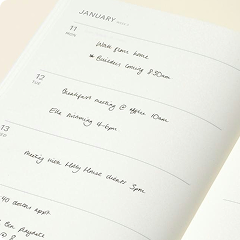 JANUARY
11
MON
Work from home
* Builders coming 8:30am
12
TUE
Breakfast meeting @ office 10am
Ella swimming 4-6pm
13
meeting with Holly House clients 3pm